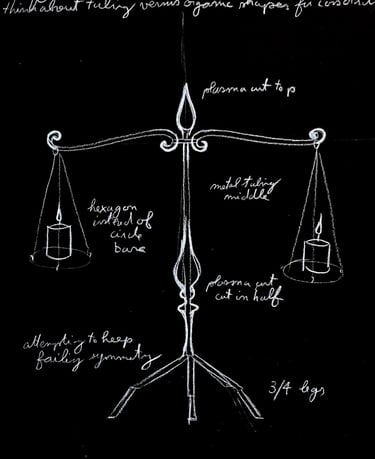 think about tubing versus organic shapes for
plasma cut top
metal tubing
middle
hexagon
instead of
circle
base
plasma cut
cut in half
attempting to keep
fairly symmetry
3/4 legs